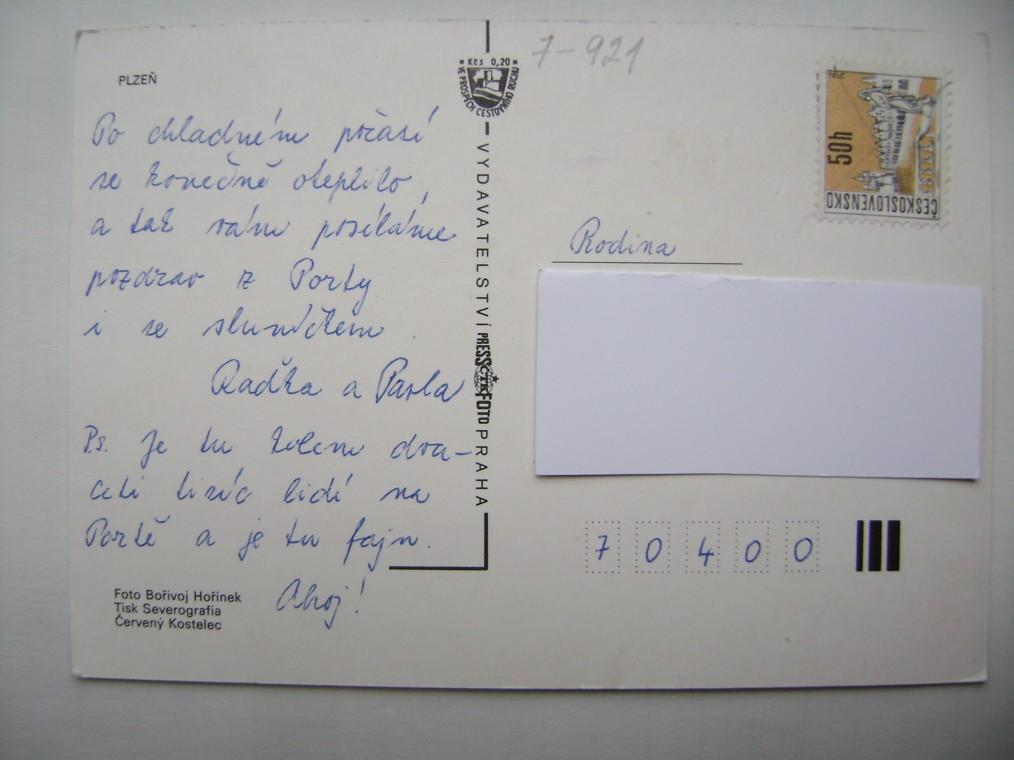 PLZEŇ
Po chladném počasí
se konečně oteplilo,
a tak vám posíláme
pozdrav z Porty
i se sluníčkem.
Radka a Pavla
Ps. Je tu kolem dva-
ceti tisíc lidí na
Portě a je tu fajn.
Ahoj!
Foto Bořivoj Hořínek
Tisk Severografia
Červený Kostelec
Kčs 0,20
VE PROSPĚCH CESTOVNÍHO RUCHU
VYDAVATELSTVÍ PRESSFOTO PRAHA
ČTK
7-921
50h
ČESKOSLOVENSKO
Rodina
7 0 4 0 0